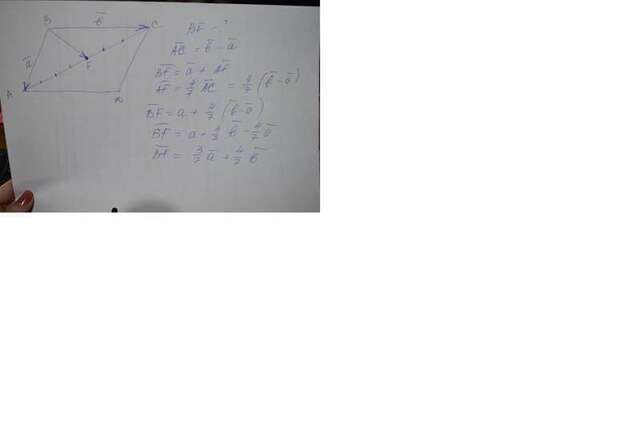 B
b̅
C
a̅
F
A
D
B̅F̅ - ?
A̅C̅ = b̅ - a̅
B̅F̅ = a̅ + A̅F̅
A̅F̅ = 4/7 A̅C̅ = 4/7 (b̅ - a̅)
B̅F̅ = a + 4/7 (b̅ - a̅)
B̅F̅ = a + 4/7 b̅ - 4/7 a̅
B̅F̅ = 3/7 a̅ + 4/7 b̅